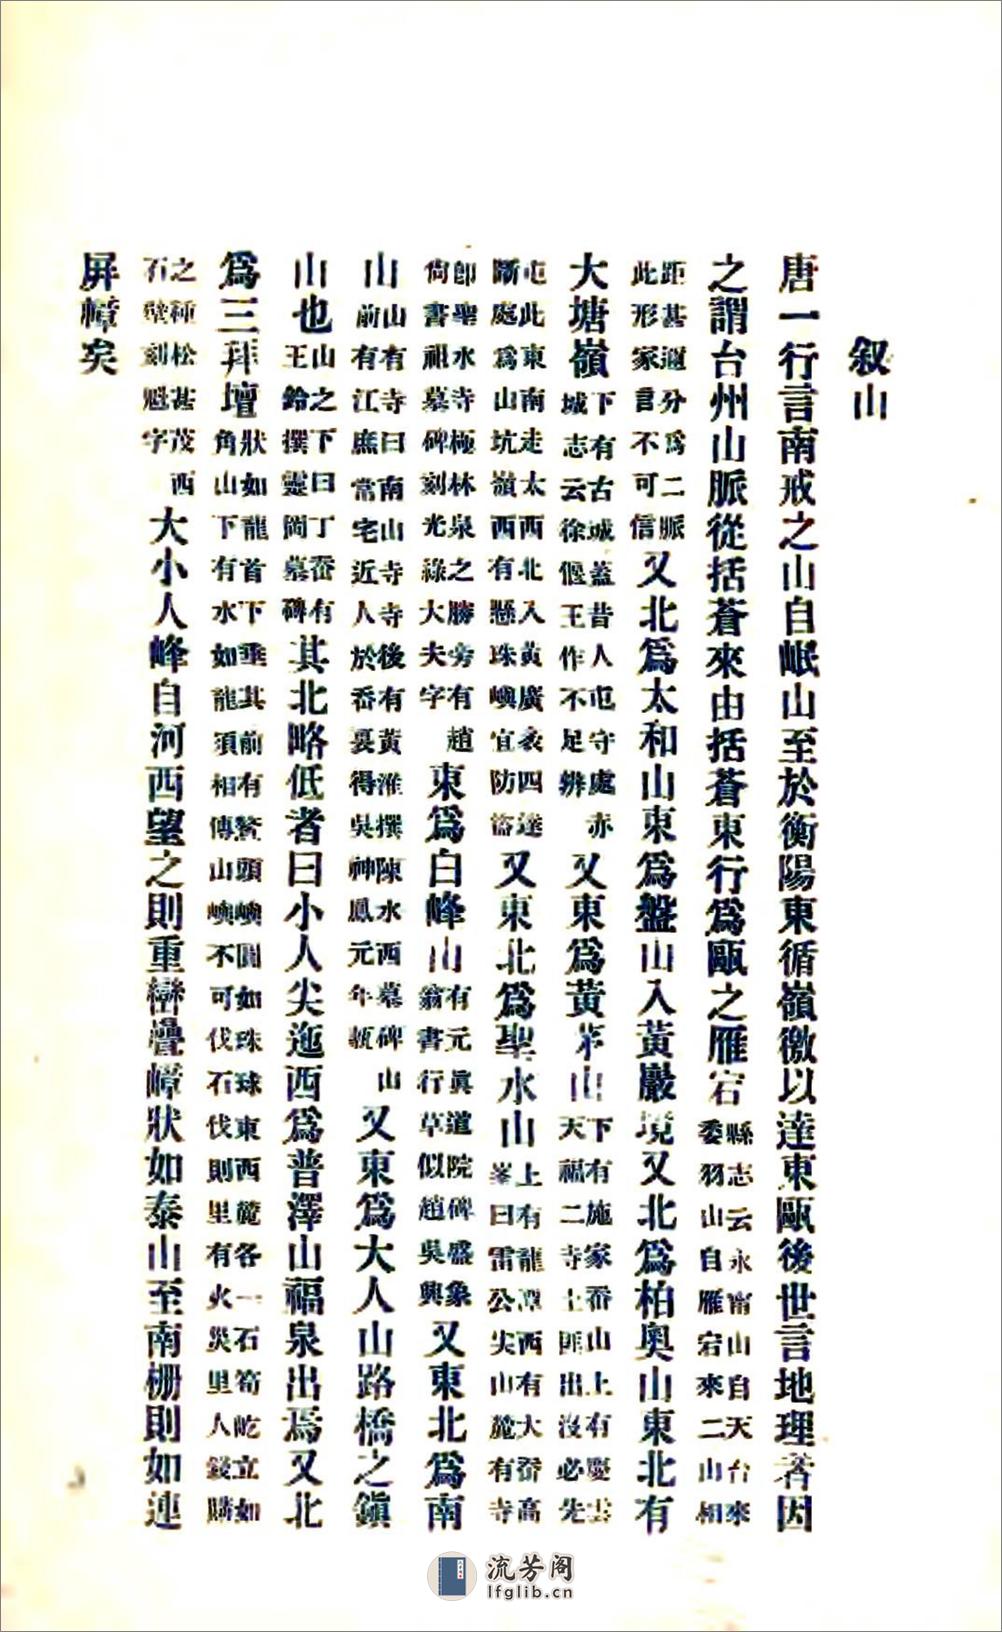 叙山
唐一行言南戒之山自岷山至於衡陽東循嶺徼以達東甌後世言地理者因
之謂台州山脈從括蒼來由括蒼東行爲甌之雁宕縣志云永甯山自天台來委羽山自雁宕來二山相
距甚邇分爲二脈此形家言不可信又北爲太和山東爲盤山入黃巖境又北爲柏奧山東北有
大塘嶺下有古城蓋昔人屯守處赤城志云徐偃王作不足辨又東爲黃茅山下有施家岙山上有慶雲天福二寺土匪出沒必先
屯此東南走太西北入黃廣衺四達斷處爲山坑嶺西有懸珠嶼宜防盜又東北爲聖水山上有龍潭西有大岙高峯曰雷公尖山麓有寺
卽聖水寺極林泉之勝旁有趙尙書祖墓碑刻光祿大夫字東爲白峰山有元眞道院碑盛象翁書行草似趙吳興又東北爲南
山山有寺曰南山寺寺後有黃淮撰陳水西墓碑山前有江庶常宅近人於岙裏得吳神鳳元年甎又東爲大人山路橋之鎭
山也山之下曰丁岙有王鈴撰靈岡墓碑其北略低者曰小人尖迤西爲普澤山福泉出焉又北
爲三拜壇狀如龍首下垂其前有鰲頭嶼圓如珠球東西麓各一石筍屹立如角山下有水如龍須相傳山嶼不可伐石伐則里有火災里人錢購
之種松甚茂西石壁刻魁字大小人峰自河西望之則重巒疊嶂狀如泰山至南栅則如連
屏幛矣
流芳阁
lfglib.cn